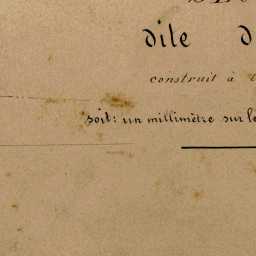 dite d
construit à
soit: un millimètre sur le